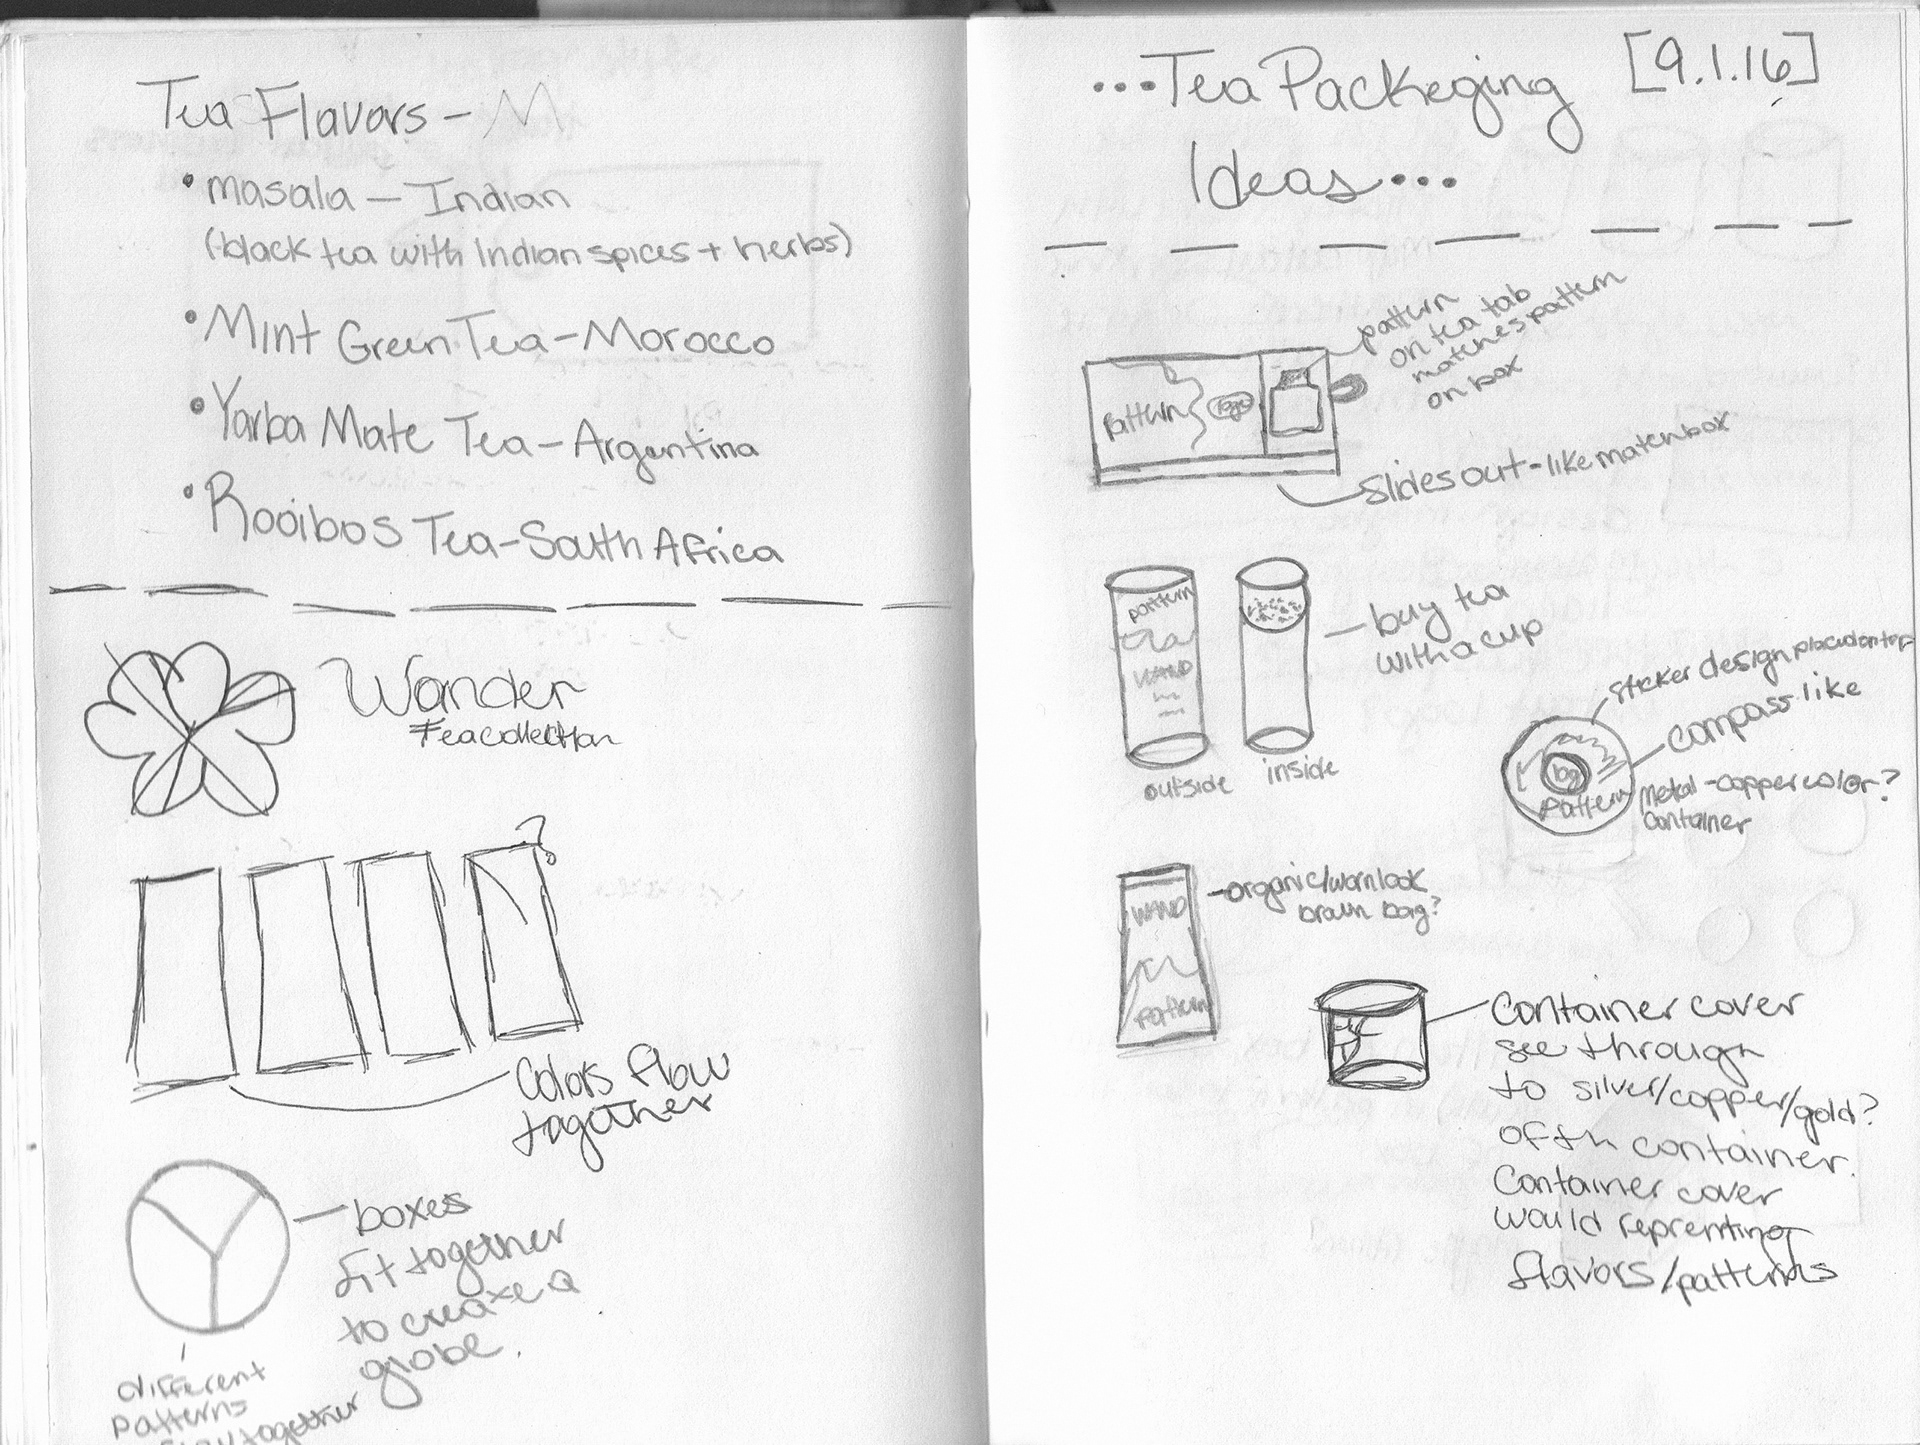 Tea Flavors - M
• masala — Indian
(black tea with Indian spices + herbs)
• Mint Green Tea - Morocco
• Yarba Mate Tea - Argentina
• Rooibos Tea - South Africa
Wander
Tea collection
?
Colors flow
together
boxes
fit together
to create a
globe.
different
patterns
together
...Tea Packeging
Ideas...
[9.1.16]
pattern
on tea tab
matches pattern
on box
Pattern
logo
Slides out - like matchbox
pattern
WAND
outside
inside
— buy tea
with a cup
sticker design placed on top
compass like
Pattern
Metal - copper color?
container
WAND
Pattern
- organic/worn look
brown bag?
Container cover
see through
to silver/copper/gold?
of th container.
Container cover
would reprenting
flavors/patterns